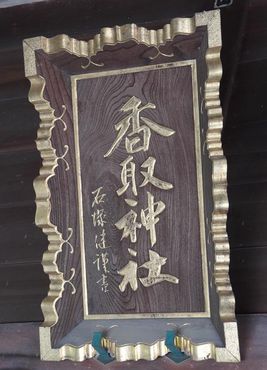 香取神社
石塚達謹書